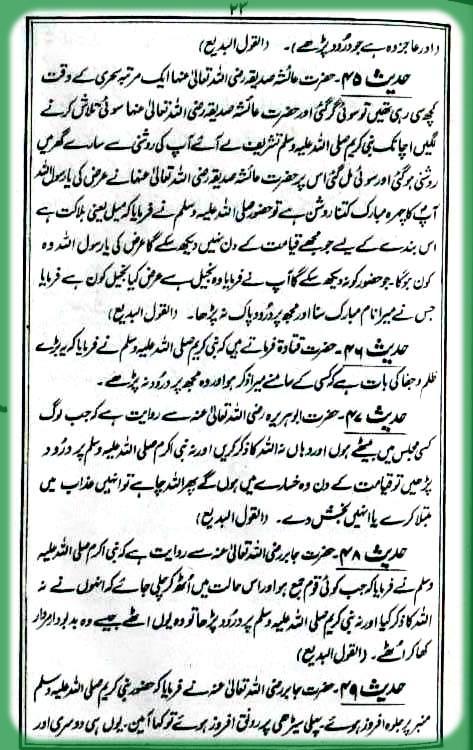 ۲۳
(اور عاجز وہ ہے جو درود پڑھے)۔ (القول البدیع)
حدیث ۴۵۔ حضرت عائشہ صدیقہ رضی اللہ تعالیٰ عنہا ایک مرتبہ سحری کے وقت
کچھ سی رہی تھیں تو سوئی گر گئی اور حضرت عائشہ صدیقہ رضی اللہ تعالیٰ عنہا سوئی تلاش کرنے
لگیں اچانک نبی کریم صلی اللہ علیہ وسلم تشریف لے آئے آپ کی روشنی سے سارے گھر میں
روشنی ہو گئی اور سوئی مل گئی اس پر حضرت عائشہ صدیقہ رضی اللہ تعالیٰ عنہا نے عرض کی یارسول اللہ
آپ کا چہرہ مبارک کتنا روشن ہے تو حضور صلی اللہ علیہ وسلم نے فرمایا کہ میل یعنی ہلاکت ہے
اس بندے کے لیے جو مجھے قیامت کے دن نہیں دیکھ سکے گا عرض کی یارسول اللہ وہ
کون ہوگا جو حضور کو نہ دیکھ سکے گا آپ نے فرمایا وہ بخیل ہے عرض کیا بخیل کون ہے فرمایا
جس نے میرا نام مبارک سنا اور مجھ پر درود پاک نہ پڑھا۔ (القول البدیع)
حدیث ۴۶۔ حضرت قتادہ فرماتے ہیں کہ نبی کریم صلی اللہ علیہ وسلم نے فرمایا کہ یہ بڑے
ظلم و جفا کی بات ہے کہ کسی کے سامنے میرا ذکر ہو اور وہ مجھ پر درود نہ پڑھے۔
حدیث ۴۷۔ حضرت ابو ہریرہ رضی اللہ تعالیٰ عنہ سے روایت ہے کہ جب لوگ
کسی مجلس میں بیٹھے ہوں اور وہاں نہ اللہ کا ذکر کریں اور نہ نبی اکرم صلی اللہ علیہ وسلم پر درود
پڑھیں تو قیامت کے دن وہ خسارے میں ہوں گے پھر اللہ چاہے تو انہیں عذاب میں
مبتلا کرے یا انہیں بخش دے۔ (القول البدیع)
حدیث ۴۸۔ حضرت جابر رضی اللہ تعالیٰ عنہ سے روایت ہے کہ نبی اکرم صلی اللہ علیہ
وسلم نے فرمایا کہ جب کوئی قوم جمع ہو اور اس حالت میں اٹھ کر چلی جائے کہ انہوں نے نہ
اللہ کا ذکر کیا اور نہ نبی کریم صلی اللہ علیہ وسلم پر درود پڑھا تو وہ یوں اٹھے جیسے وہ بدبودار مردار
کھا کر اٹھے۔ (القول البدیع)
حدیث ۴۹۔ حضرت جابر رضی اللہ تعالیٰ عنہ نے فرمایا کہ حضور نبی کریم صلی اللہ علیہ وسلم
منبر پر جلوہ افروز ہوئے۔ پہلی سیڑھی پر رونق افروز ہوئے تو کہا آمین۔ یوں ہی دوسری اور